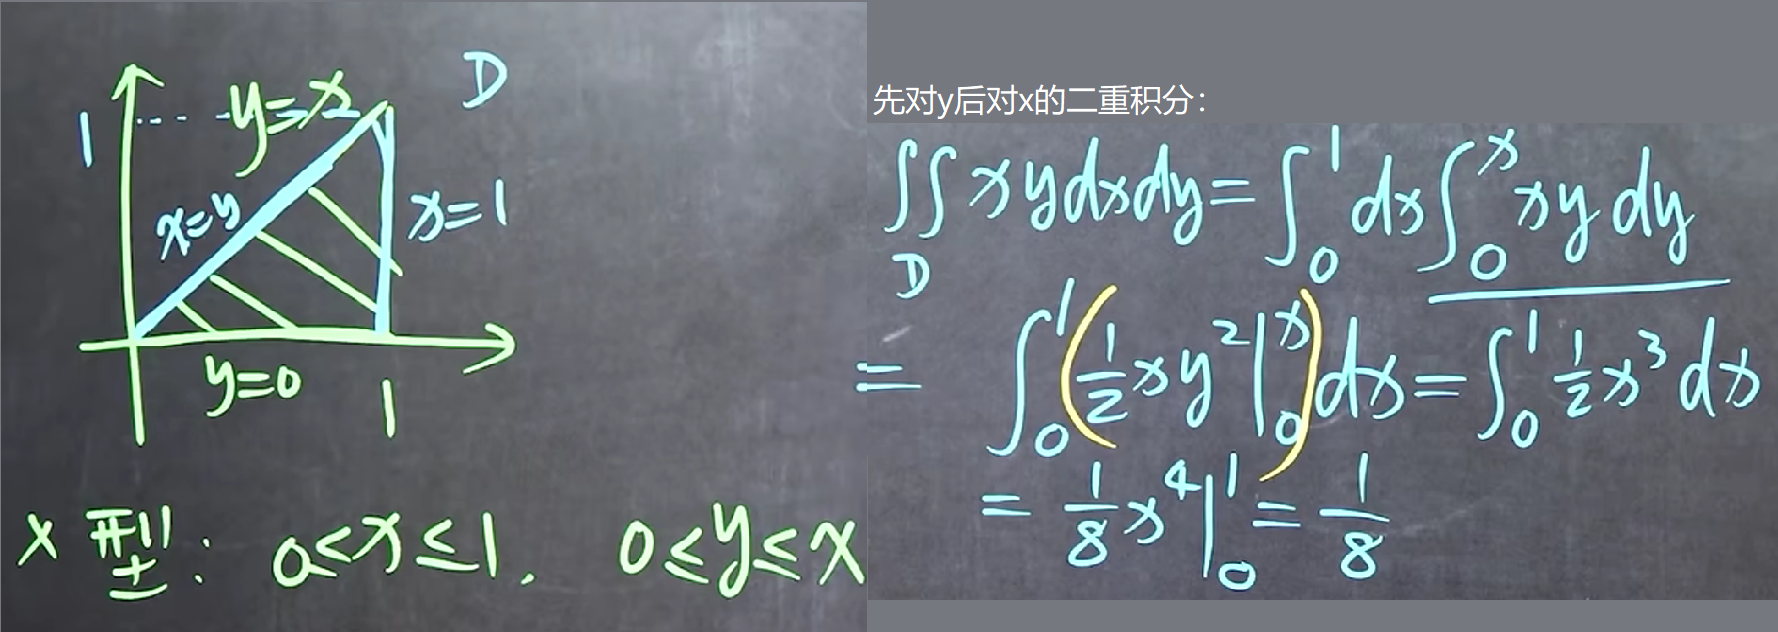 D
y=x
1
x=y
x=1
y=0
1
X 型: 0≤x≤1, 0≤y≤x
先对y后对x的二重积分:
∬_D xydxdy = ∫_0^1 dx ∫_0^x xy dy
= ∫_0^1 (1/2 xy^2 |_0^x) dx = ∫_0^1 1/2 x^3 dx
= 1/8 x^4 |_0^1 = 1/8